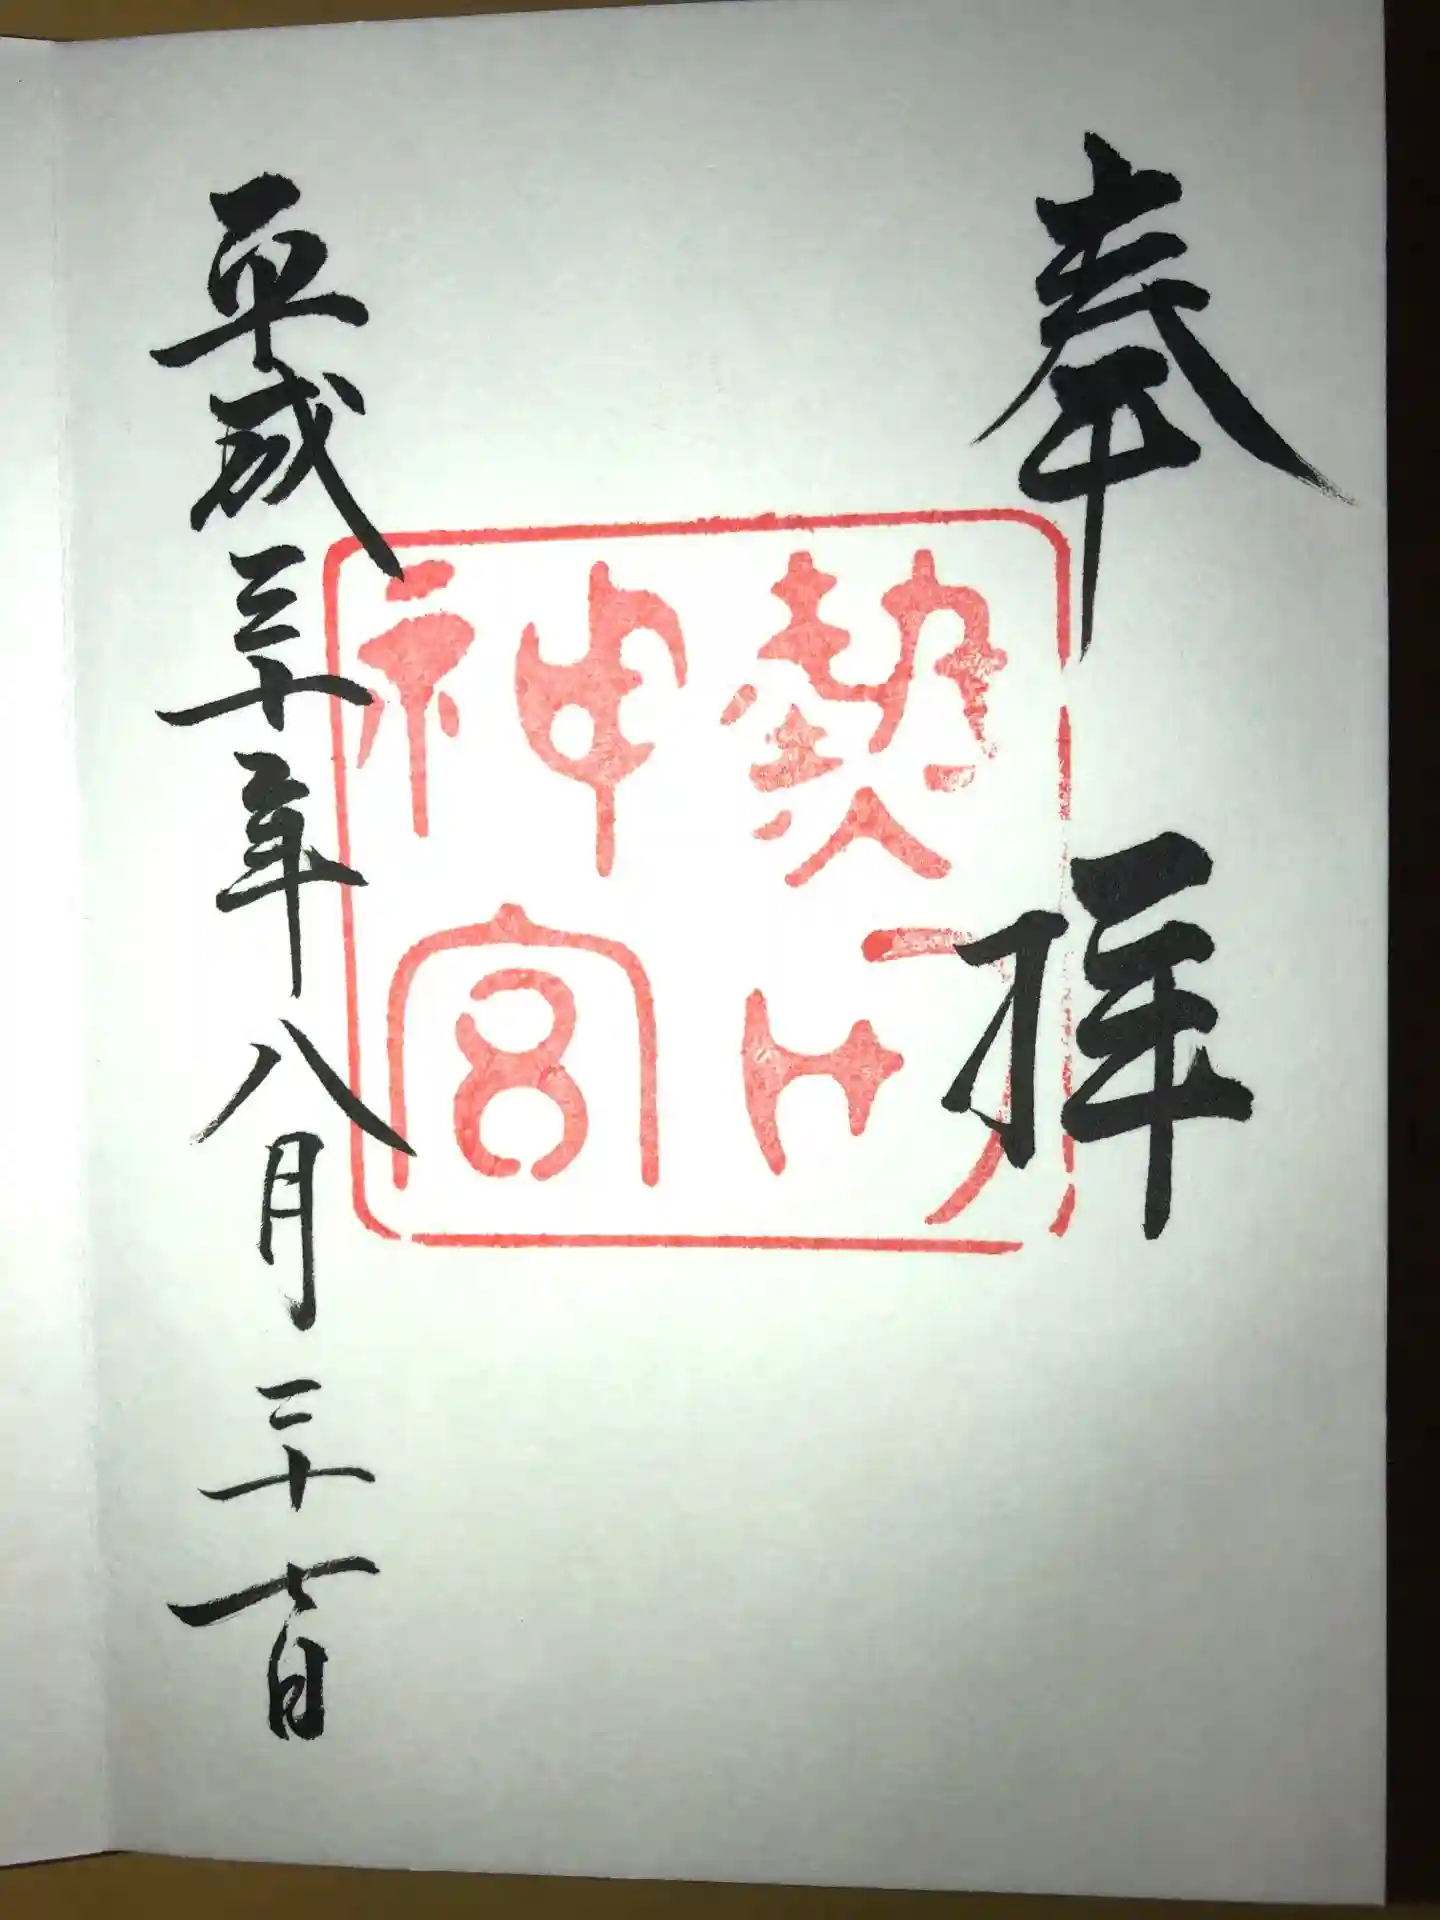 奉拝
熱田神宮
平成三十年八月二十七日